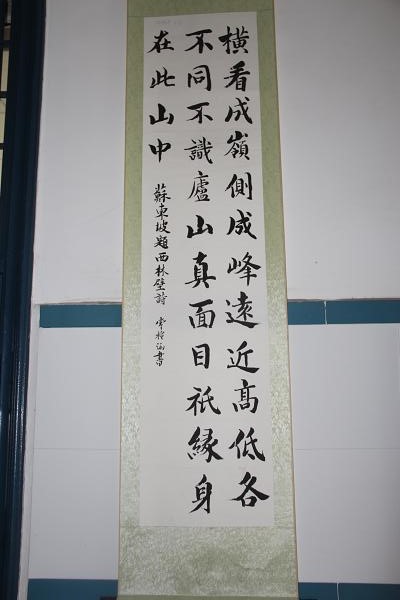 橫看成嶺側成峰遠近髙低各
不同不識廬山真面目祇緣身
在此山中
蘇東坡題西林壁詩 書